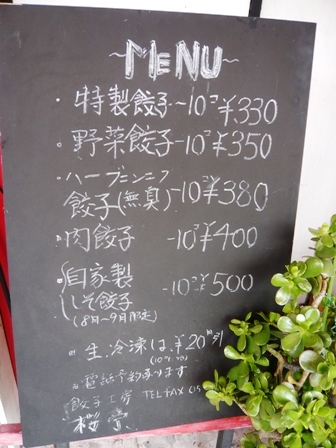 ~MENU~
・特製餃子-10コ¥330
・野菜餃子-10コ¥350
・ハーブニンニク
餃子(無臭)-10コ¥380
・肉餃子 -10コ¥400
・自家製
しそ餃子 -10コ¥500
(8月~9月限定)
・生、冷凍は、¥20
・電話予約承ります
餃子工房 TEL FAX